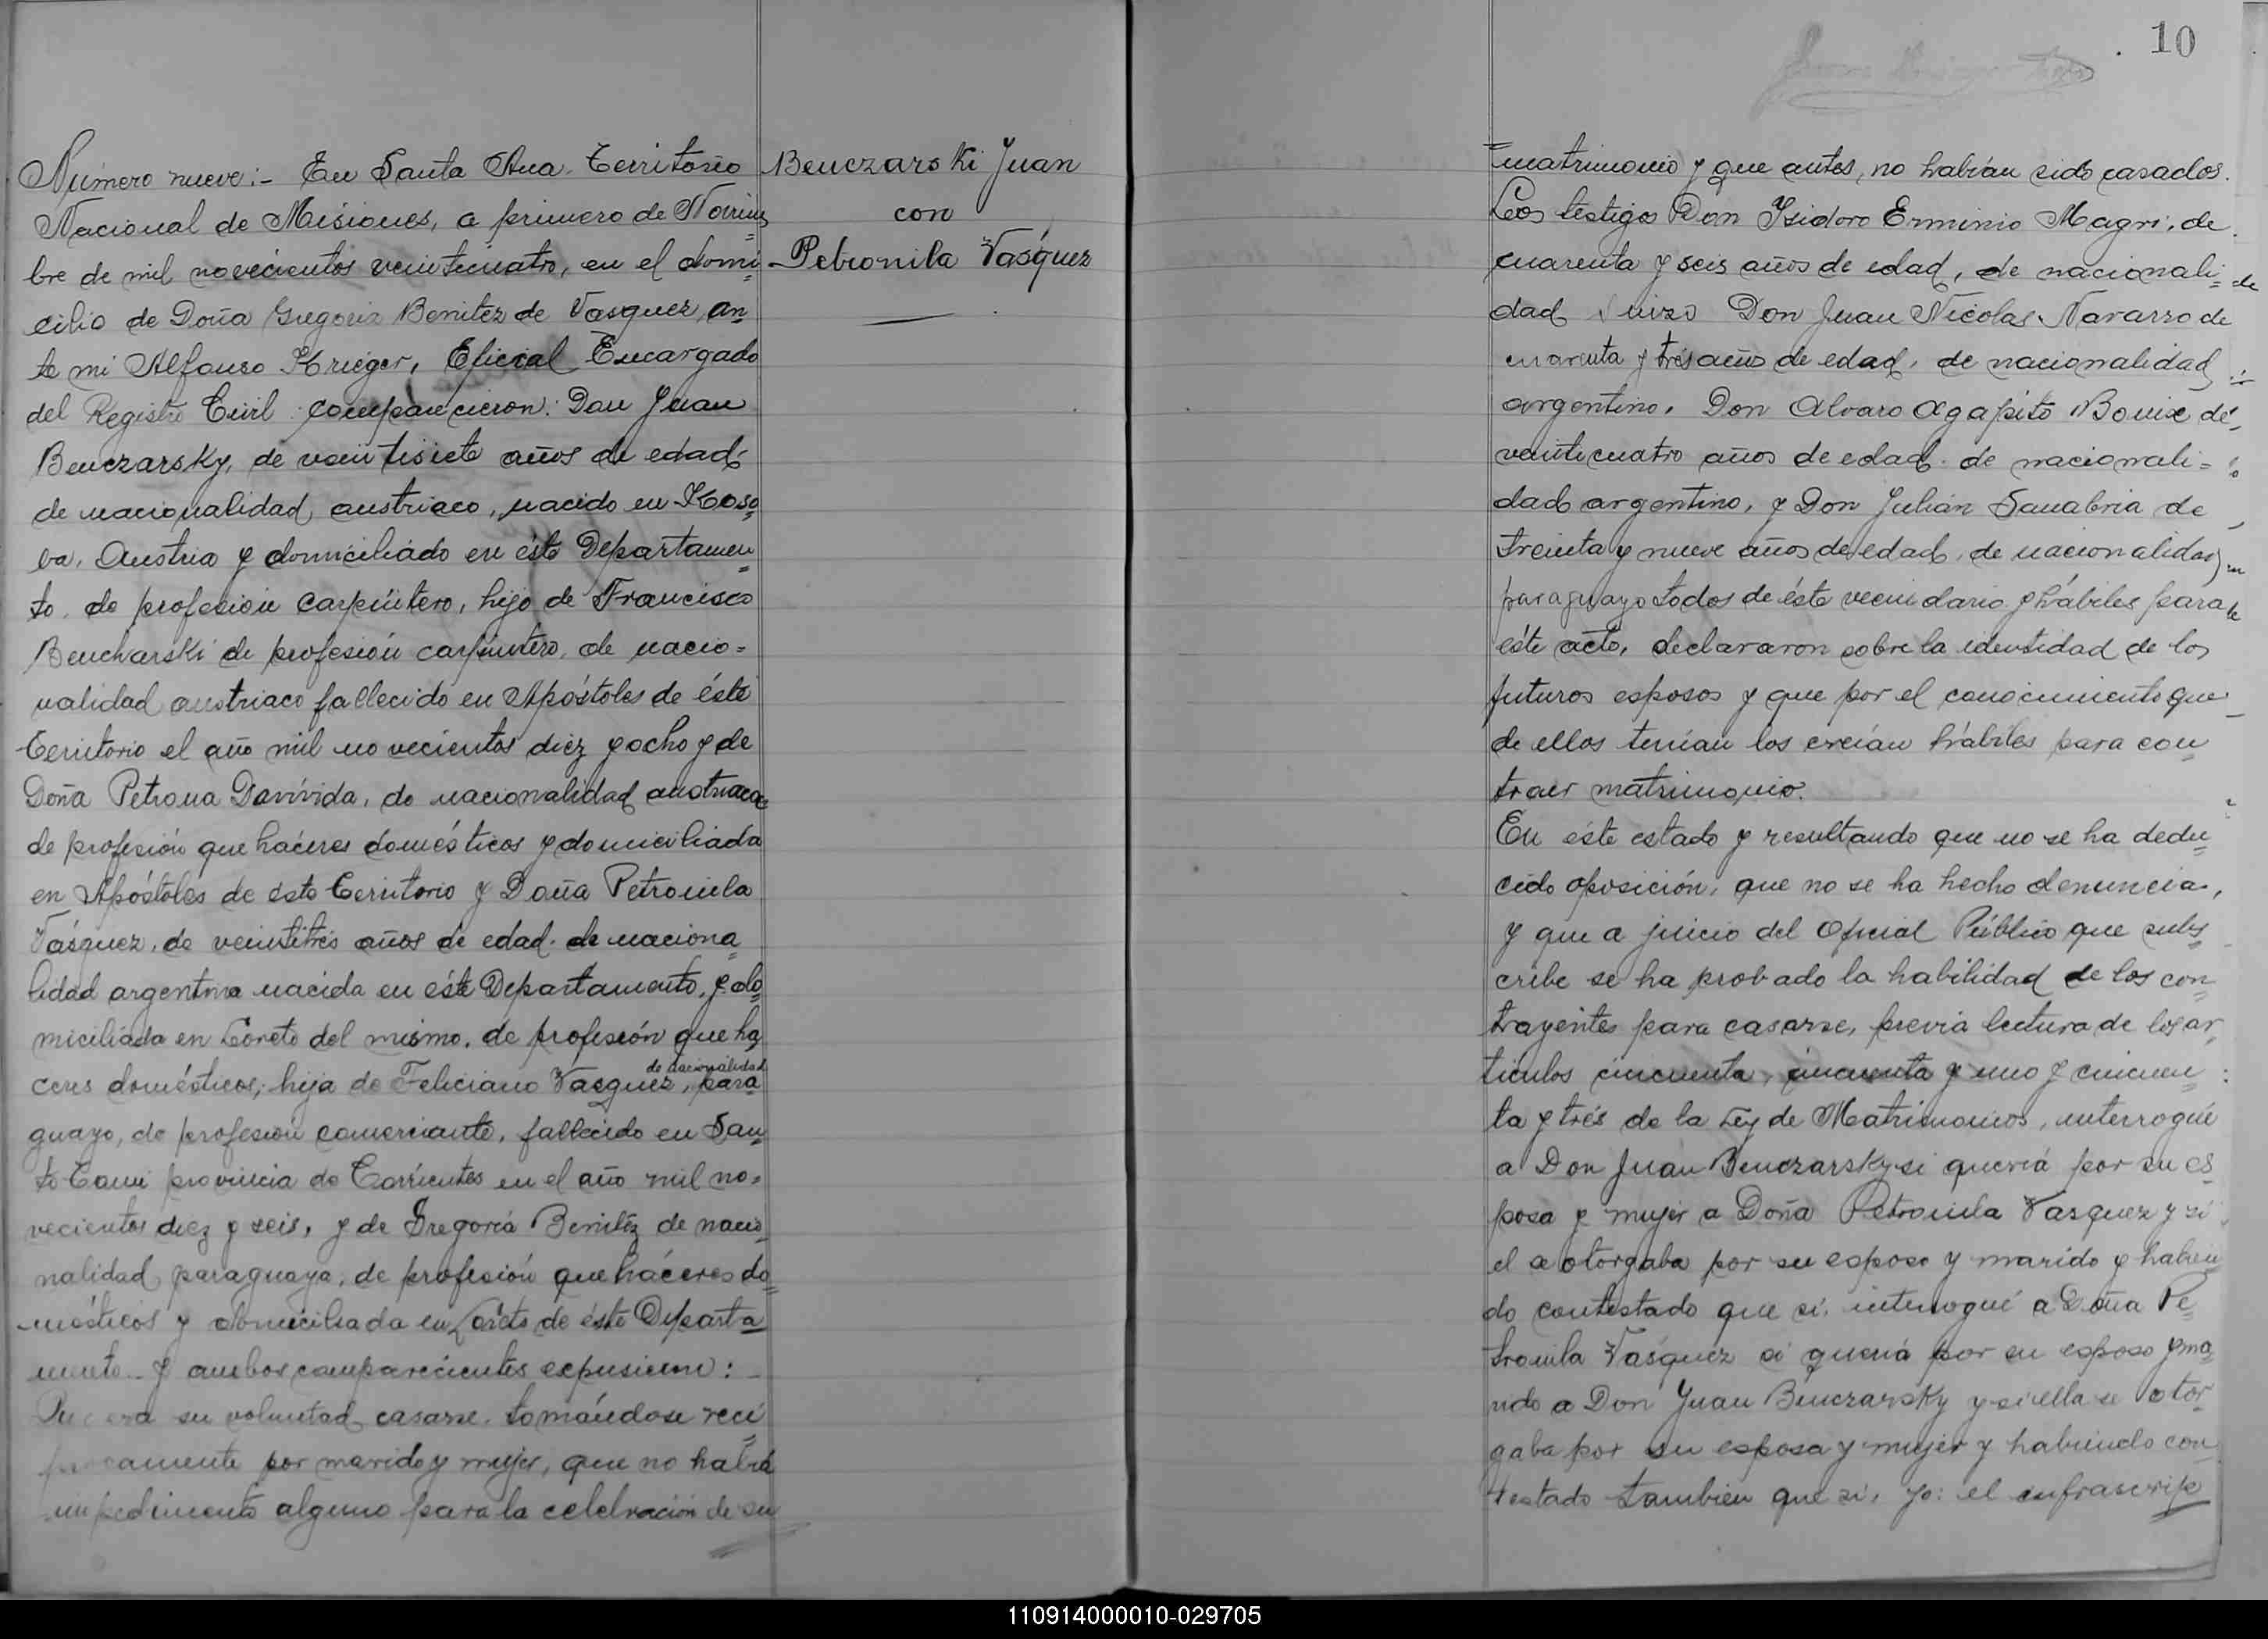 Número nueve:- En Santa Ana. Territorio
Nacional de Misiones, a primero de Noviem=
bre de mil novecientos veinticuatro, en el domi=
cilio de Doña Gregoria Benitez de Vasquez, an=
te mi Alfonso Krieger, Oficial Encargado
del Registro Civil comparecieron: Don Juan
Benczarsky, de veintisiete años de edad,
de nacionalidad austriaco, nacido en Koso=
va, Austria y domiciliado en éste Departamen=
to, de profesión carpintero, hijo de Francisco
Bencharski de profesión carpintero, de nacio=
nalidad austriaco fallecido en Apóstoles de éste
Territorio el año mil novecientos diez y ocho y de
Doña Petrona Davívida, de nacionalidad austriaca
de profesión que háceres domésticos y domiciliada
en Apóstoles de éste Territorio y Doña Petronila
Vásquez, de veintitrés años de edad, de naciona=
lidad argentina nacida en éste Departamento, y do=
miciliada en Loreto del mismo, de profesión que há=
ceres domésticos; hija de Feliciano Vasquez, de nacionalidad para=
guayo, de profesión comerciante, fallecido en San=
to Tomé provincia de Corrientes en el año mil no=
vecientos diez y seis, y de Gregoria Benitéz de nacio=
nalidad paraguaya, de profesión que háceres do=
mésticos y domiciliada en Loreto de éste Departa=
mento.- Y ambos comparecientes expusieron:-
Que era su voluntad casarse, tomándose recí=
procamente por marido y mujer, que no habiá
impedimento alguno para la celebración de su
Benczarski Juan
con
Petronila Vásquez
10
=matrimonio y que antes, no habían sido casados.
Los testigos Don Ysidoro Erminio Magri, de
cuarenta y seis años de edad, de nacionali=
dad suizo Don Juan Nicolas Navarro de
cuarenta y trés años de edad, de nacionalidad
argentino, Don Alvaro Agapito Bouix de
veinticuatro años de edad, de nacionali=
dad argentino, y Don Julián Sanabria de
treinta y nueve años de edad, de nacionalidad
paraguayo todos de éste vecindario y hábiles para
éste acto, declararon sobre la identidad de los
futuros esposos y que por el conocimiento que
de ellos tenían los creían hábiles para con=
traer matrimonio.
En éste estado y resultando que no se ha dedu=
cido oposición, que no se ha hecho denuncia,
y que a juicio del Oficial Público que subs=
cribe se ha probado la habilidad de los con=
trayentes para casarse, previa lectura de los ar=
tículos cincuenta, cincuenta y uno y cincuen=
ta y trés de la Ley de Matrimonios, interrogué
a Don Juan Benczarsky si queriá por su es=
posa y mujer a Doña Petronila Vasquez y si
el se otorgaba por su esposo y marido y habien=
do contestado que si, interrogué a Doña Pe=
tronila Vásquez si queriá por su esposo y ma=
rido a Don Juan Benczarsky y si ella se otor=
gaba por su esposa y mujer y habiendo con=
testado tambien que si, yo: el infrascrip=
110914000010-029705